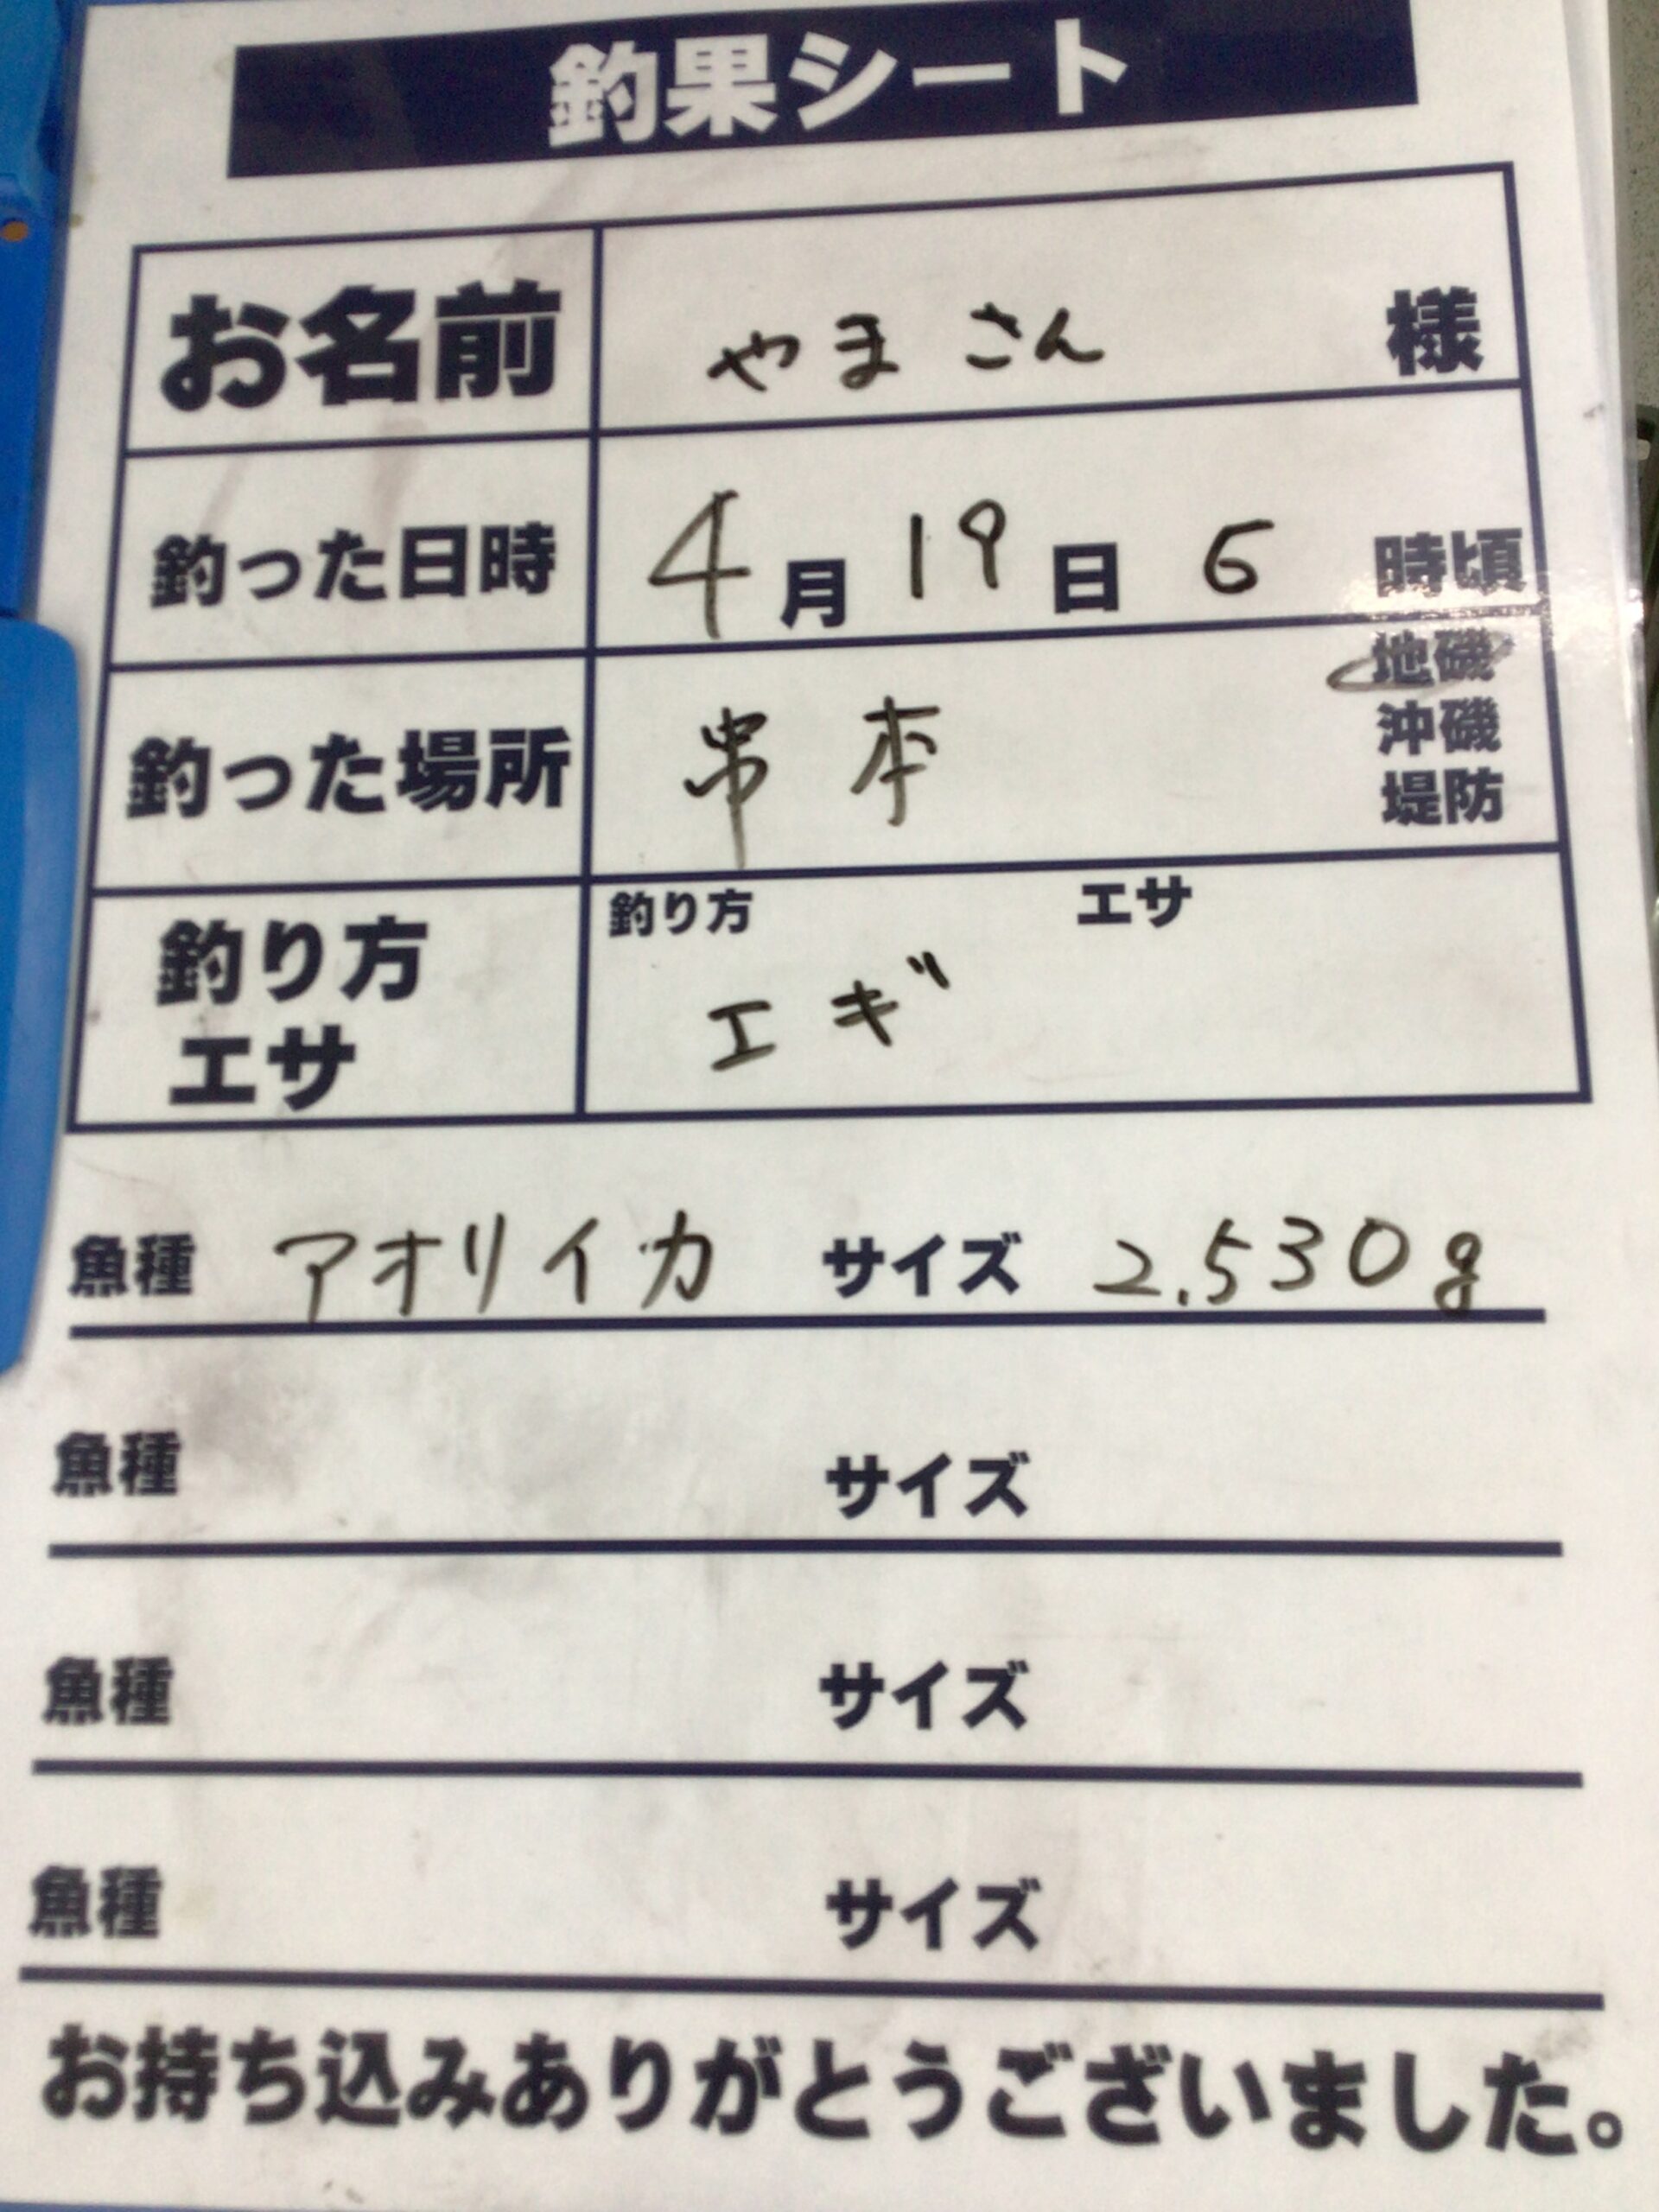 釣果シート
お名前 やまさん 様
釣った日時 4月19日6時頃
地磯
釣った場所 串本 沖磯
堤防
釣り方 エサ
釣り方 エギ
エサ
魚種 アオリイカ サイズ 2.530g
魚種 サイズ
魚種 サイズ
魚種 サイズ
お持ち込みありがとうございました。